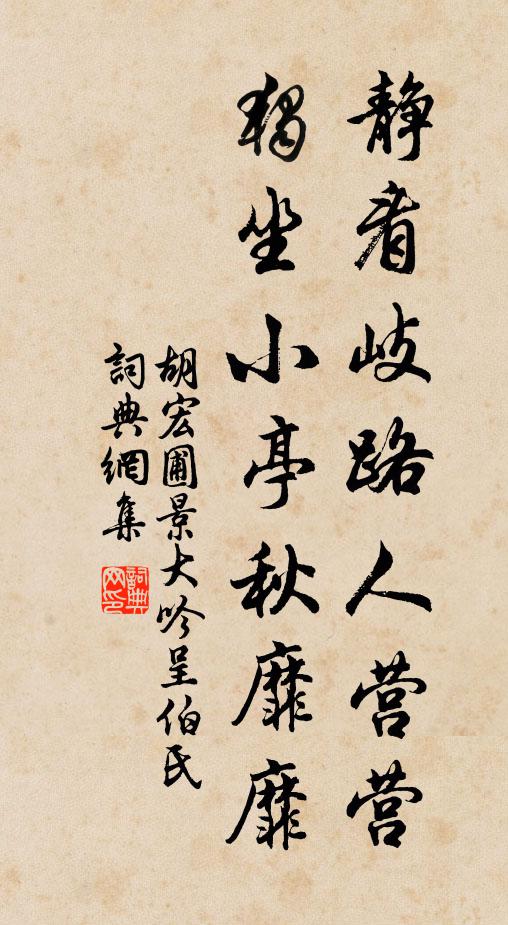 静看岐路人营营
独坐小亭秋靡靡
胡宏圃景大吟呈伯氏
詞典網集
詞典网印